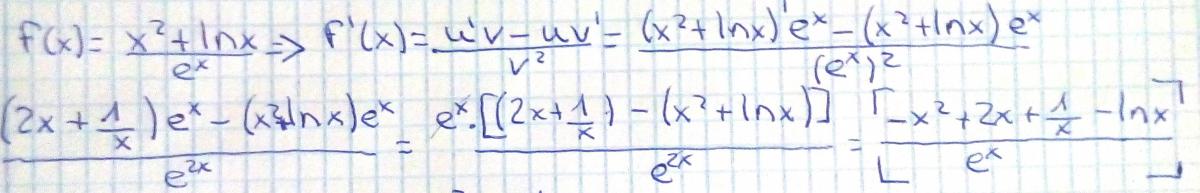 f(x) = (x² + lnx)/(eˣ) => f'(x) = (u'v - uv')/(v²) = ((x² + lnx)'eˣ - (x² + lnx)eˣ)/((eˣ)²)
((2x + 1/x)eˣ - (x² + lnx)eˣ)/(e²ˣ) = (eˣ·[(2x + 1/x) - (x² + lnx)])/(e²ˣ) = [(-x² + 2x + 1/x - lnx)/(eˣ)]